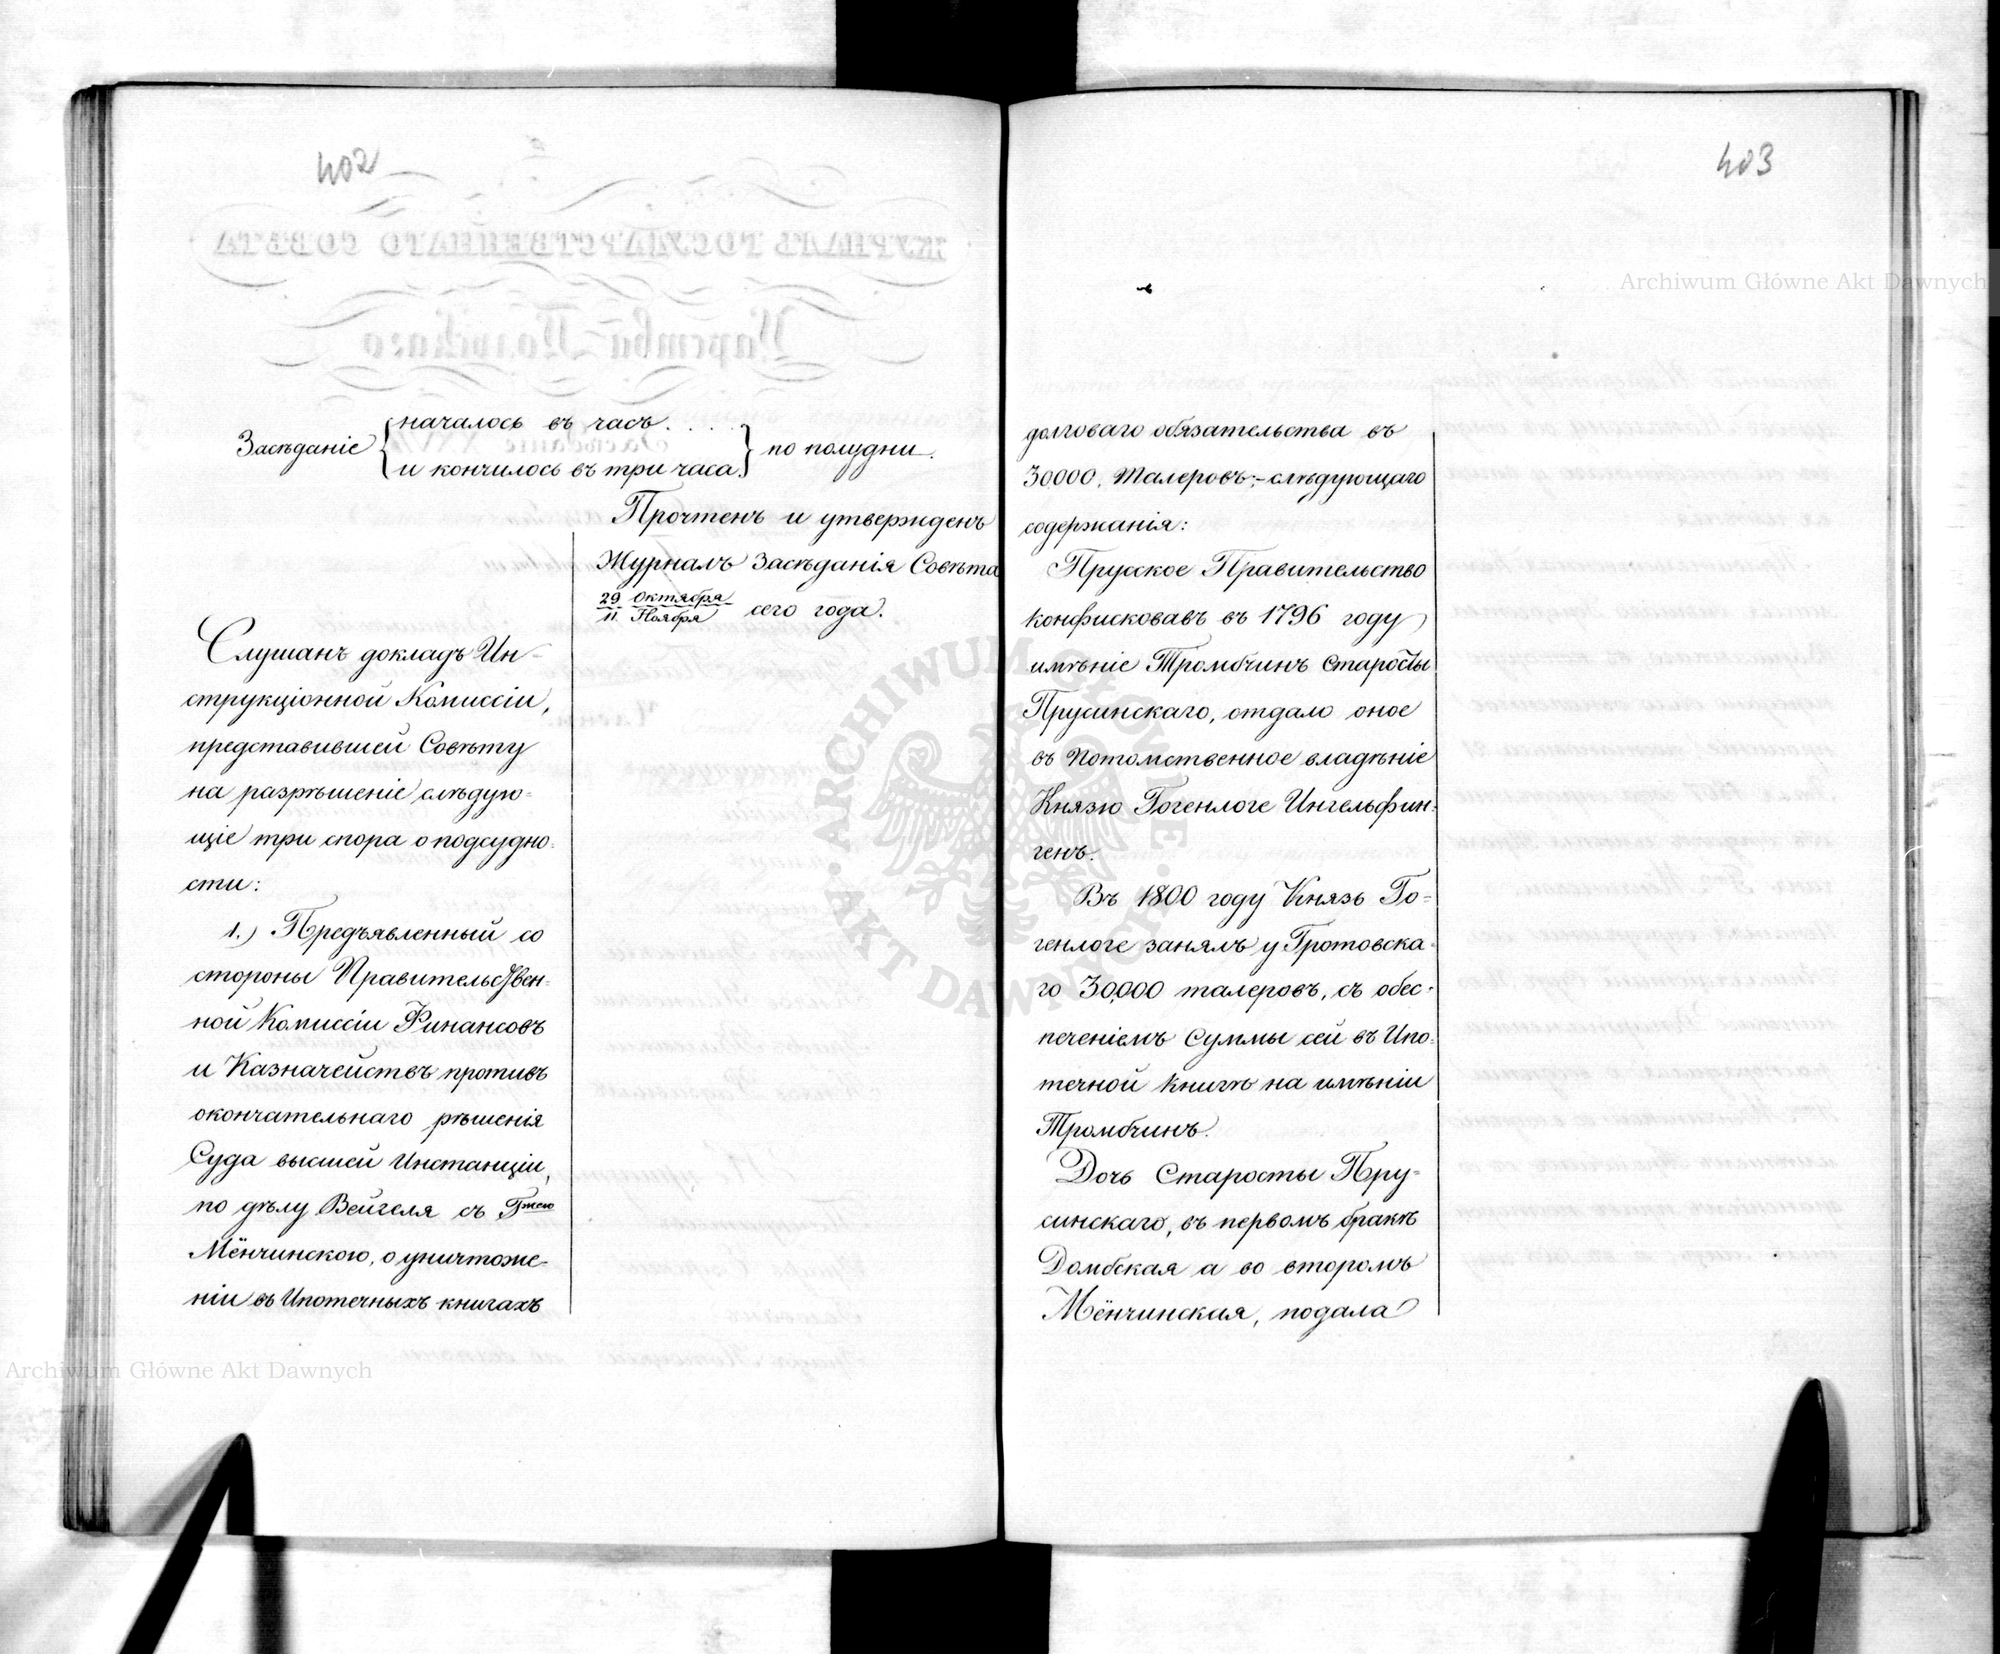 402
Засѣданіе
началось въ часъ. . . .
и кончилось въ три часа.
по полудни.
Прочтенъ и утвержденъ
Журналъ Засѣданія Совѣта
29 Октября
11. Ноября
сего года.
Слушанъ докладъ Ин-
струкціонной Комиссіи,
представившей Совѣту
на разрѣшеніе слѣдую-
щіе три спора о подсудно-
сти:
1.) Предъявленный со
стороны Правительствен-
ной Комиссіи Финансовъ
и Казначействъ противъ
окончательнаго рѣшенія
Суда высшей Инстанціи,
по дѣлу Вейгеля съ Гжею
Мёнчинскою, о уничтоже-
ніи въ Ипотечныхъ книгахъ
403
долговаго обязательства въ
30000. Талеровъ;- слѣдующаго
содержанія:
Прусское Правительство
конфисковавъ въ 1796 году
имѣніе Тромбчинъ Старосты
Прусинскаго, отдало оное
въ Потомственное владѣніе
Князю Гогенлоге Ингельфин-
генъ.
Въ 1800 году Князь Го-
генлоге занялъ у Гротовска-
го 30,000 талеровъ, съ обес-
печеніемъ Суммы сей въ Ипо-
течной книгѣ на имѣніи
Тромбчинъ.
Дочь Старосты Пру-
синскаго, въ первомъ бракѣ
Домбская а во второмъ
Мёнчинская, подала
Archiwum Główne Akt Dawnych
Archiwum Główne Akt Dawnych
ARCHIWUM GŁÓWNE · AKT DAWNYCH ·